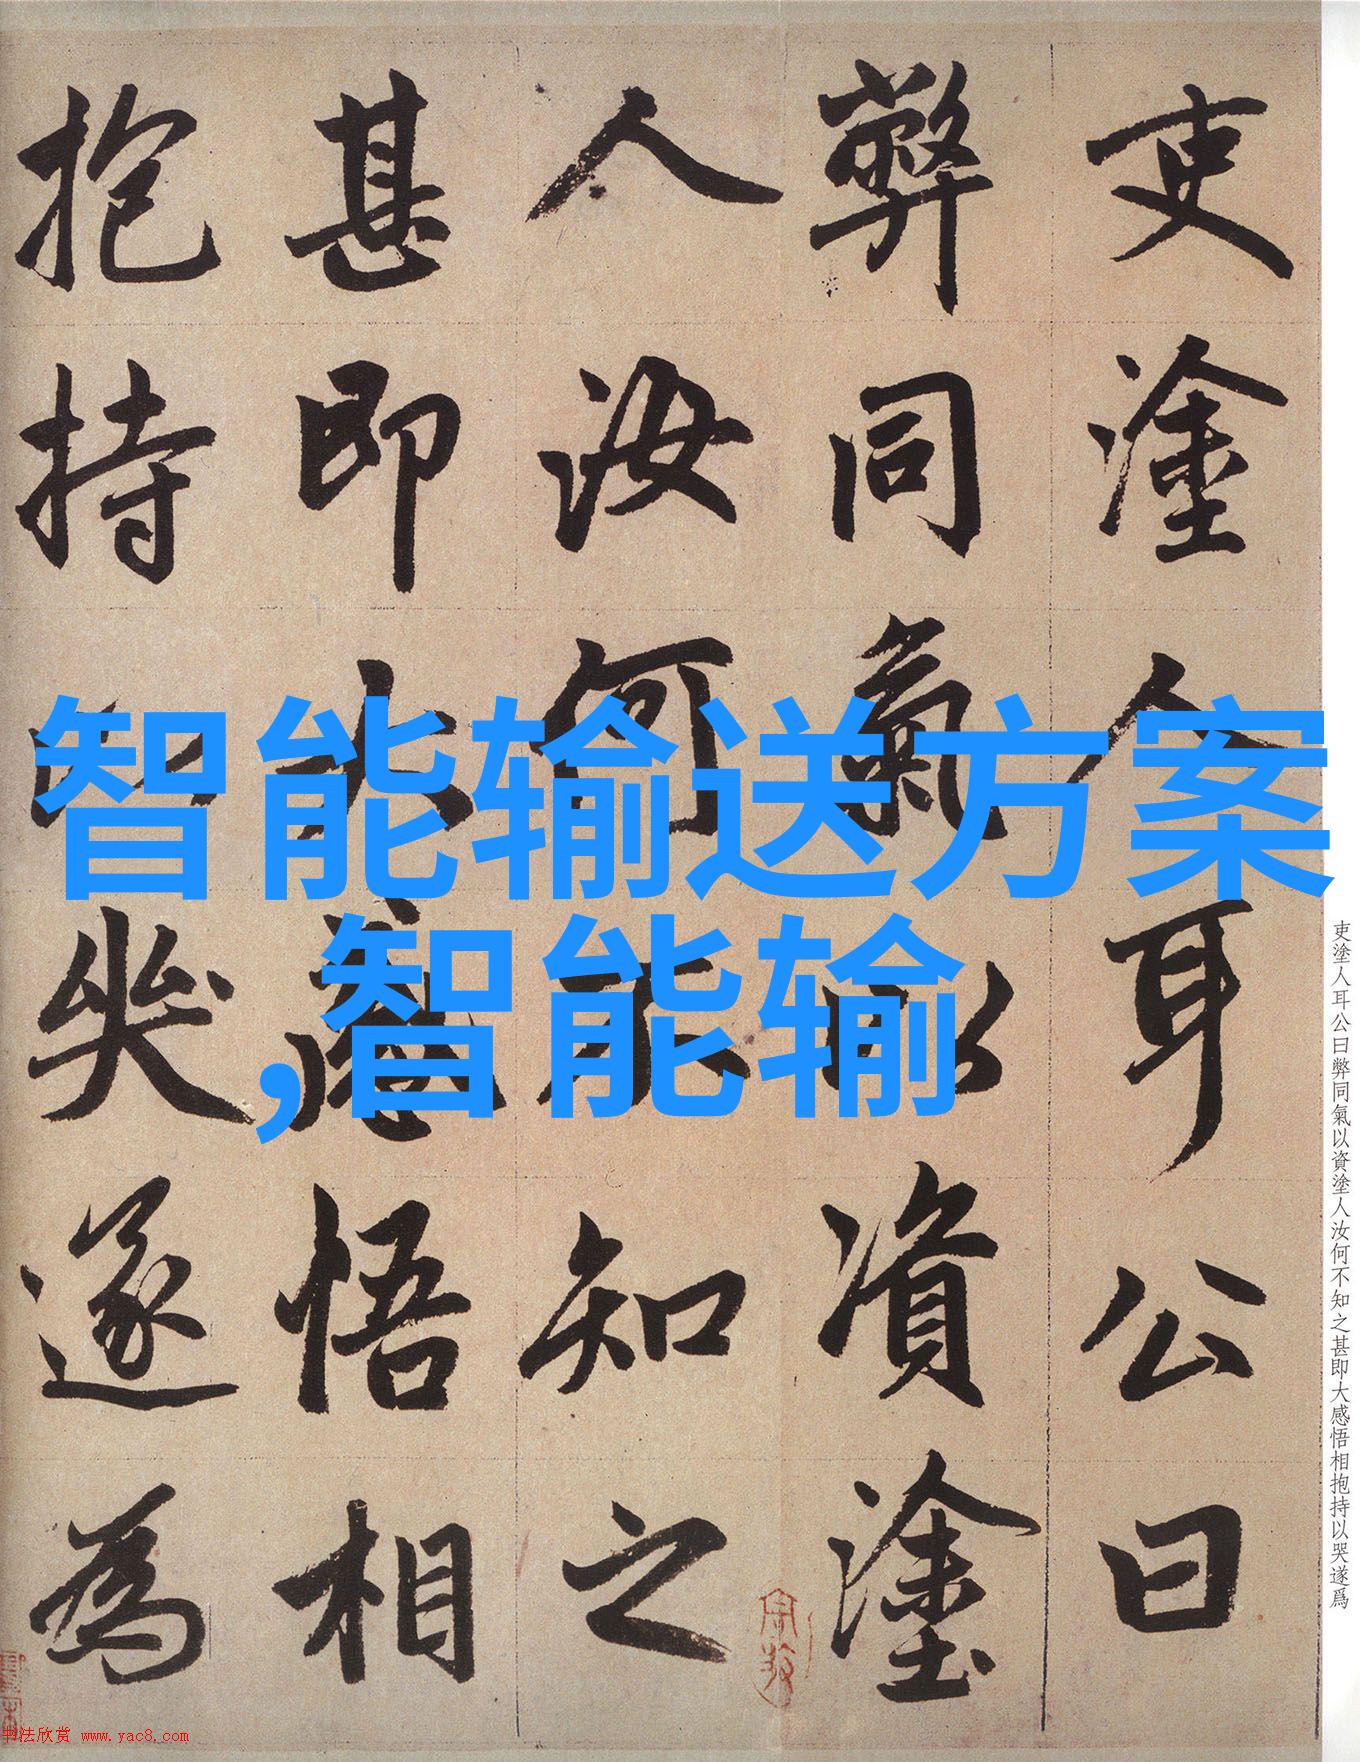 智能输送方案
,智能输
吏塗人耳公曰
弊同氣以資塗
人汝何不知之
甚即大感悟相
抱持以哭遂為
吏塗人耳公曰弊同氣以資塗人汝何不知之甚即大感悟相抱持以哭遂爲
书法欣赏 www.yac8.com